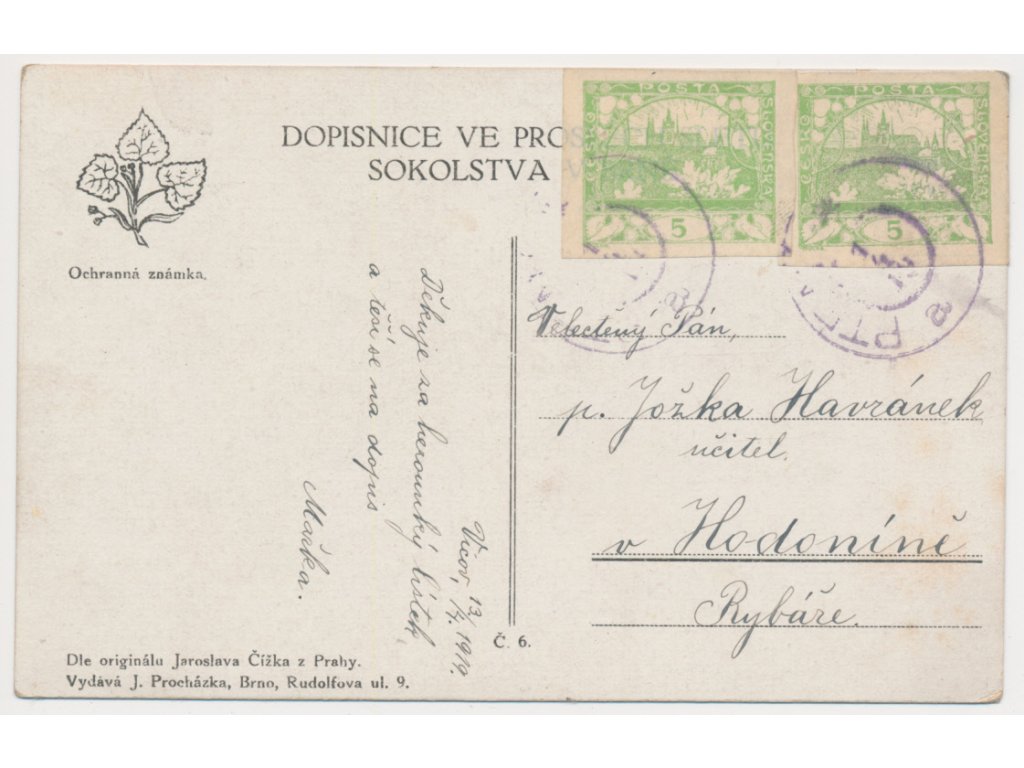 DOPISNICE VE PROS
SOKOLSTVA
POSTA
ČESKO SLOVENSKA
5
POSTA
ČESKO SLOVENSKA
5
Ochranná známka.
Vícov, 13/IV. 1919.
Děkuje za herounký lístek,
a těší se na dopis
Mařka.
Velectěný Pán,
p. Jožka Havránek
učitel.
v Hodoníně
Rybáře.
Č. 6.
Dle originálu Jaroslava Čížka z Prahy.
Vydává J. Procházka, Brno, Rudolfova ul. 9.